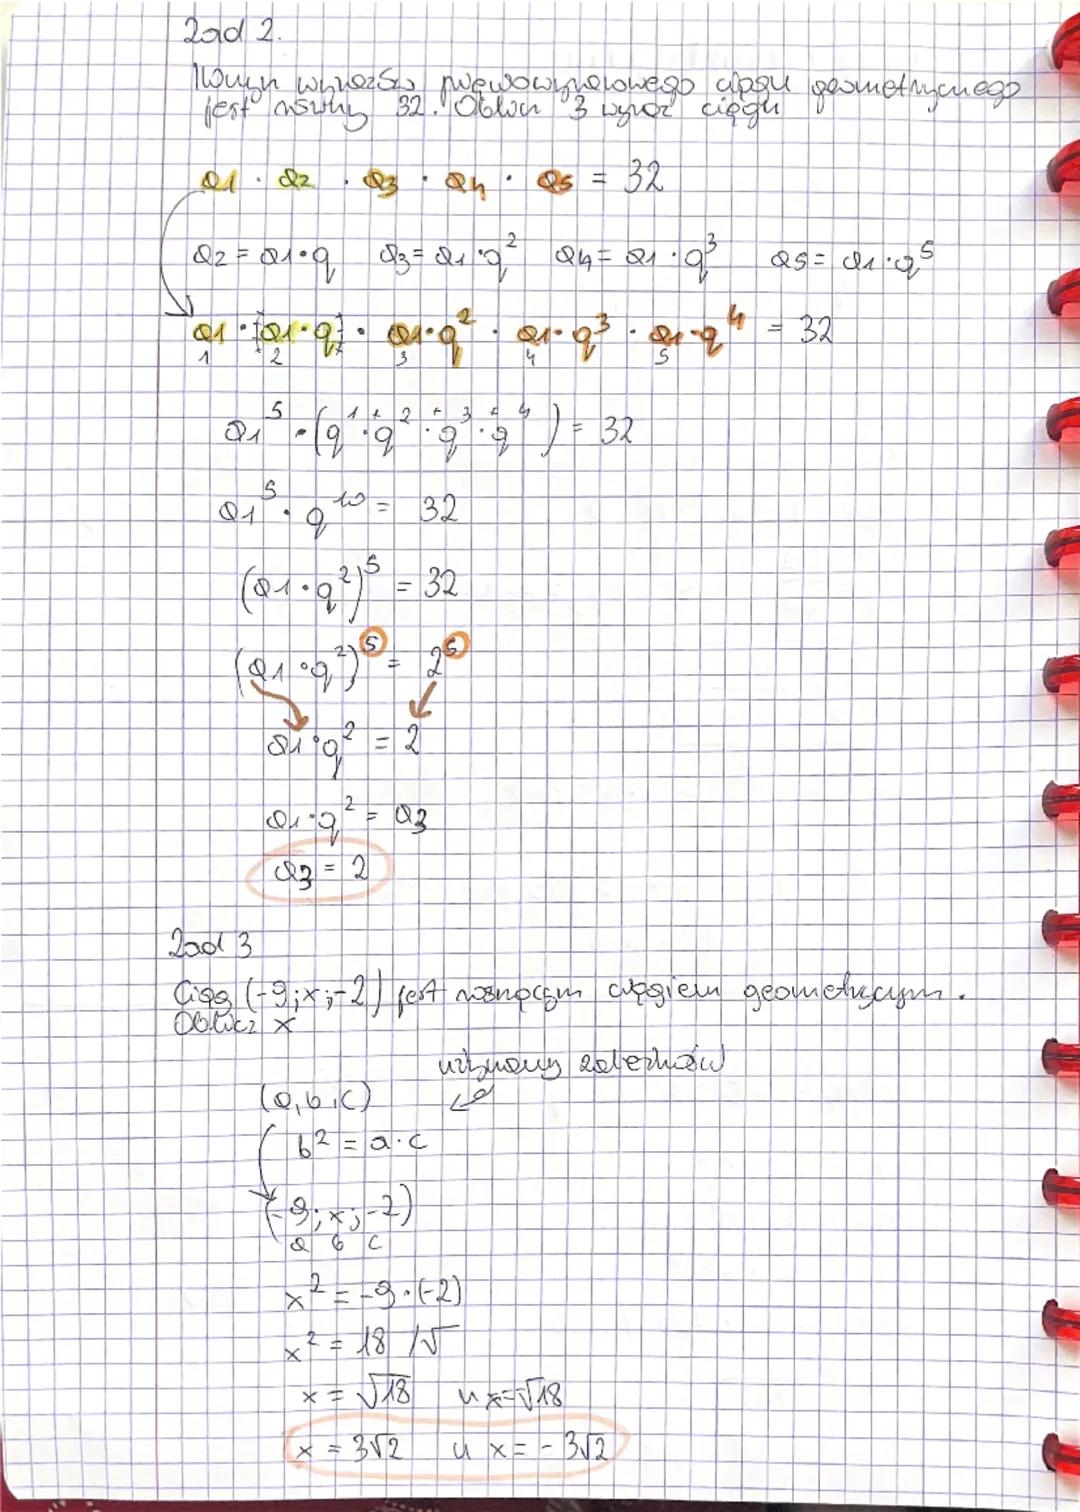 Zad 2.
Iloczyn wyrazów pięciowyrazowego ciągu geometrycznego
jest równy 32. Oblicz 3 wyraz ciągu
a1 · a2 · a3 · a4 · a5 = 32
a2 = a1 · q a3 = a1 · q² a4 = a1 · q³ a5 = a1 · q⁵
a1 · [a1 · q] · a1 · q² · a1 · q³ · a1 · q⁴ = 32
1 2 3 4 5
a1⁵ · (q¹ · q⁺² · q⁺³ · q⁺⁴) = 32
a1⁵ · q¹⁰ = 32
(a1 · q²)⁵ = 32
(a1 · q²)⁵ = 2⁵
a1 · q² = 2
a1 · q² = a3
a3 = 2
Zad 3
Ciąg (-9; x; -2) jest rosnącym ciągiem geometrycznym.
Oblicz x
używamy zależności
(a, b, c)
b² = a · c
(-9; x; -2)
a b c
x² = -9 · (-2)
x² = 18 /√
x = √18 u x = -√18
x = 3√2 u x = -3√2